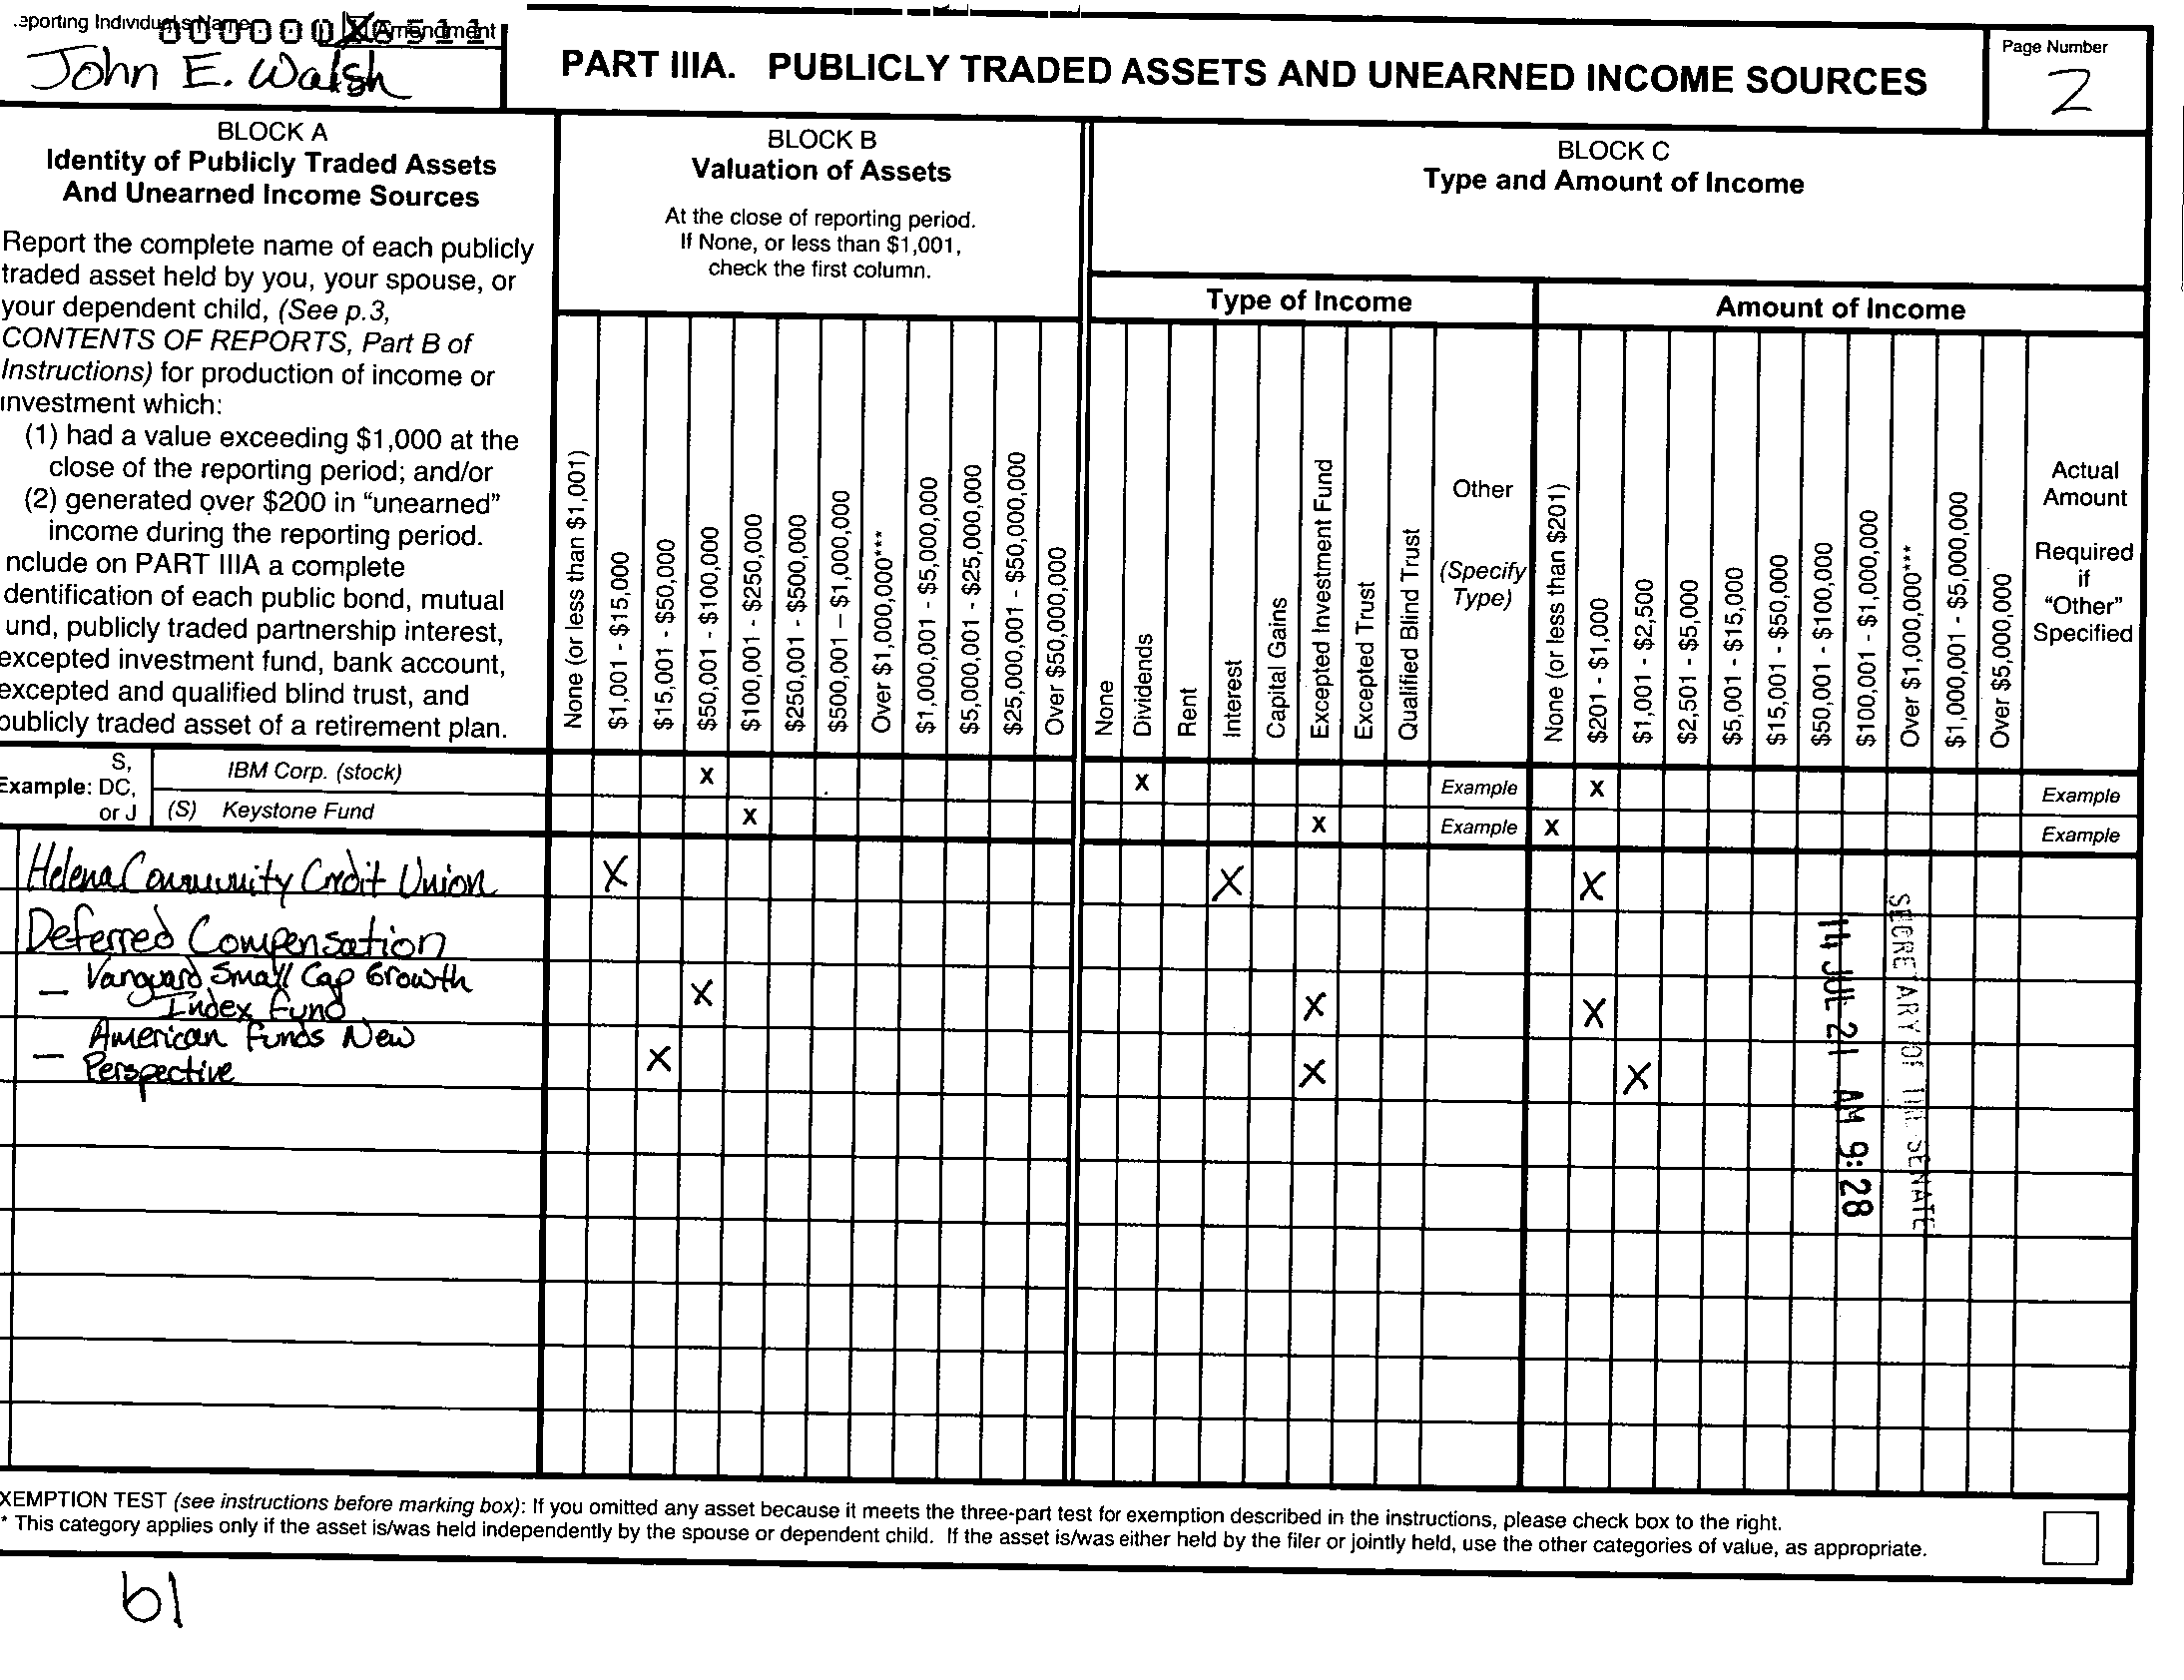 eporting Individual's Name
Amendment
John E. Walsh
PART IIIA. PUBLICLY TRADED ASSETS AND UNEARNED INCOME SOURCES
Page Number
2
BLOCK A
Identity of Publicly Traded Assets
And Unearned Income Sources
Report the complete name of each publicly
traded asset held by you, your spouse, or
your dependent child, (See p.3,
CONTENTS OF REPORTS, Part B of
Instructions) for production of income or
investment which:
(1) had a value exceeding $1,000 at the
close of the reporting period; and/or
(2) generated over $200 in "unearned"
income during the reporting period.
nclude on PART IIIA a complete
dentification of each public bond, mutual
und, publicly traded partnership interest,
excepted investment fund, bank account,
excepted and qualified blind trust, and
publicly traded asset of a retirement plan.
BLOCK B
Valuation of Assets
At the close of reporting period.
If None, or less than $1,001,
check the first column.
None (or less than $1,001)
$1,001 - $15,000
$15,001 - $50,000
$50,001 - $100,000
$100,001 - $250,000
$250,001 - $500,000
$500,001 – $1,000,000
Over $1,000,000***
$1,000,001 - $5,000,000
$5,000,001 - $25,000,000
$25,000,001 - $50,000,000
Over $50,000,000
BLOCK C
Type and Amount of Income
Type of Income
None
Dividends
Rent
Interest
Capital Gains
Excepted Investment Fund
Excepted Trust
Qualified Blind Trust
Other
(Specify
Type)
Amount of Income
None (or less than $201)
$201 - $1,000
$1,001 - $2,500
$2,501 - $5,000
$5,001 - $15,000
$15,001 - $50,000
$50,001 - $100,000
$100,001 - $1,000,000
Over $1,000,000***
$1,000,001 - $5,000,000
Over $5,000,000
Actual
Amount
Required
if
"Other"
Specified
Example: DC,
S,
or J
IBM Corp. (stock) X X Example X Example
(S) Keystone Fund X X Example X Example
Helena Community Credit Union X X X
Deferred Compensation
— Vanguard Small Cap Growth
Index Fund X X X
— American Funds New
Perspective X X X
SECRETARY OF THE SENATE
14 JUL 21 AM 9:28
XEMPTION TEST (see instructions before marking box): If you omitted any asset because it meets the three-part test for exemption described in the instructions, please check box to the right.
* This category applies only if the asset is/was held independently by the spouse or dependent child. If the asset is/was either held by the filer or jointly held, use the other categories of value, as appropriate.